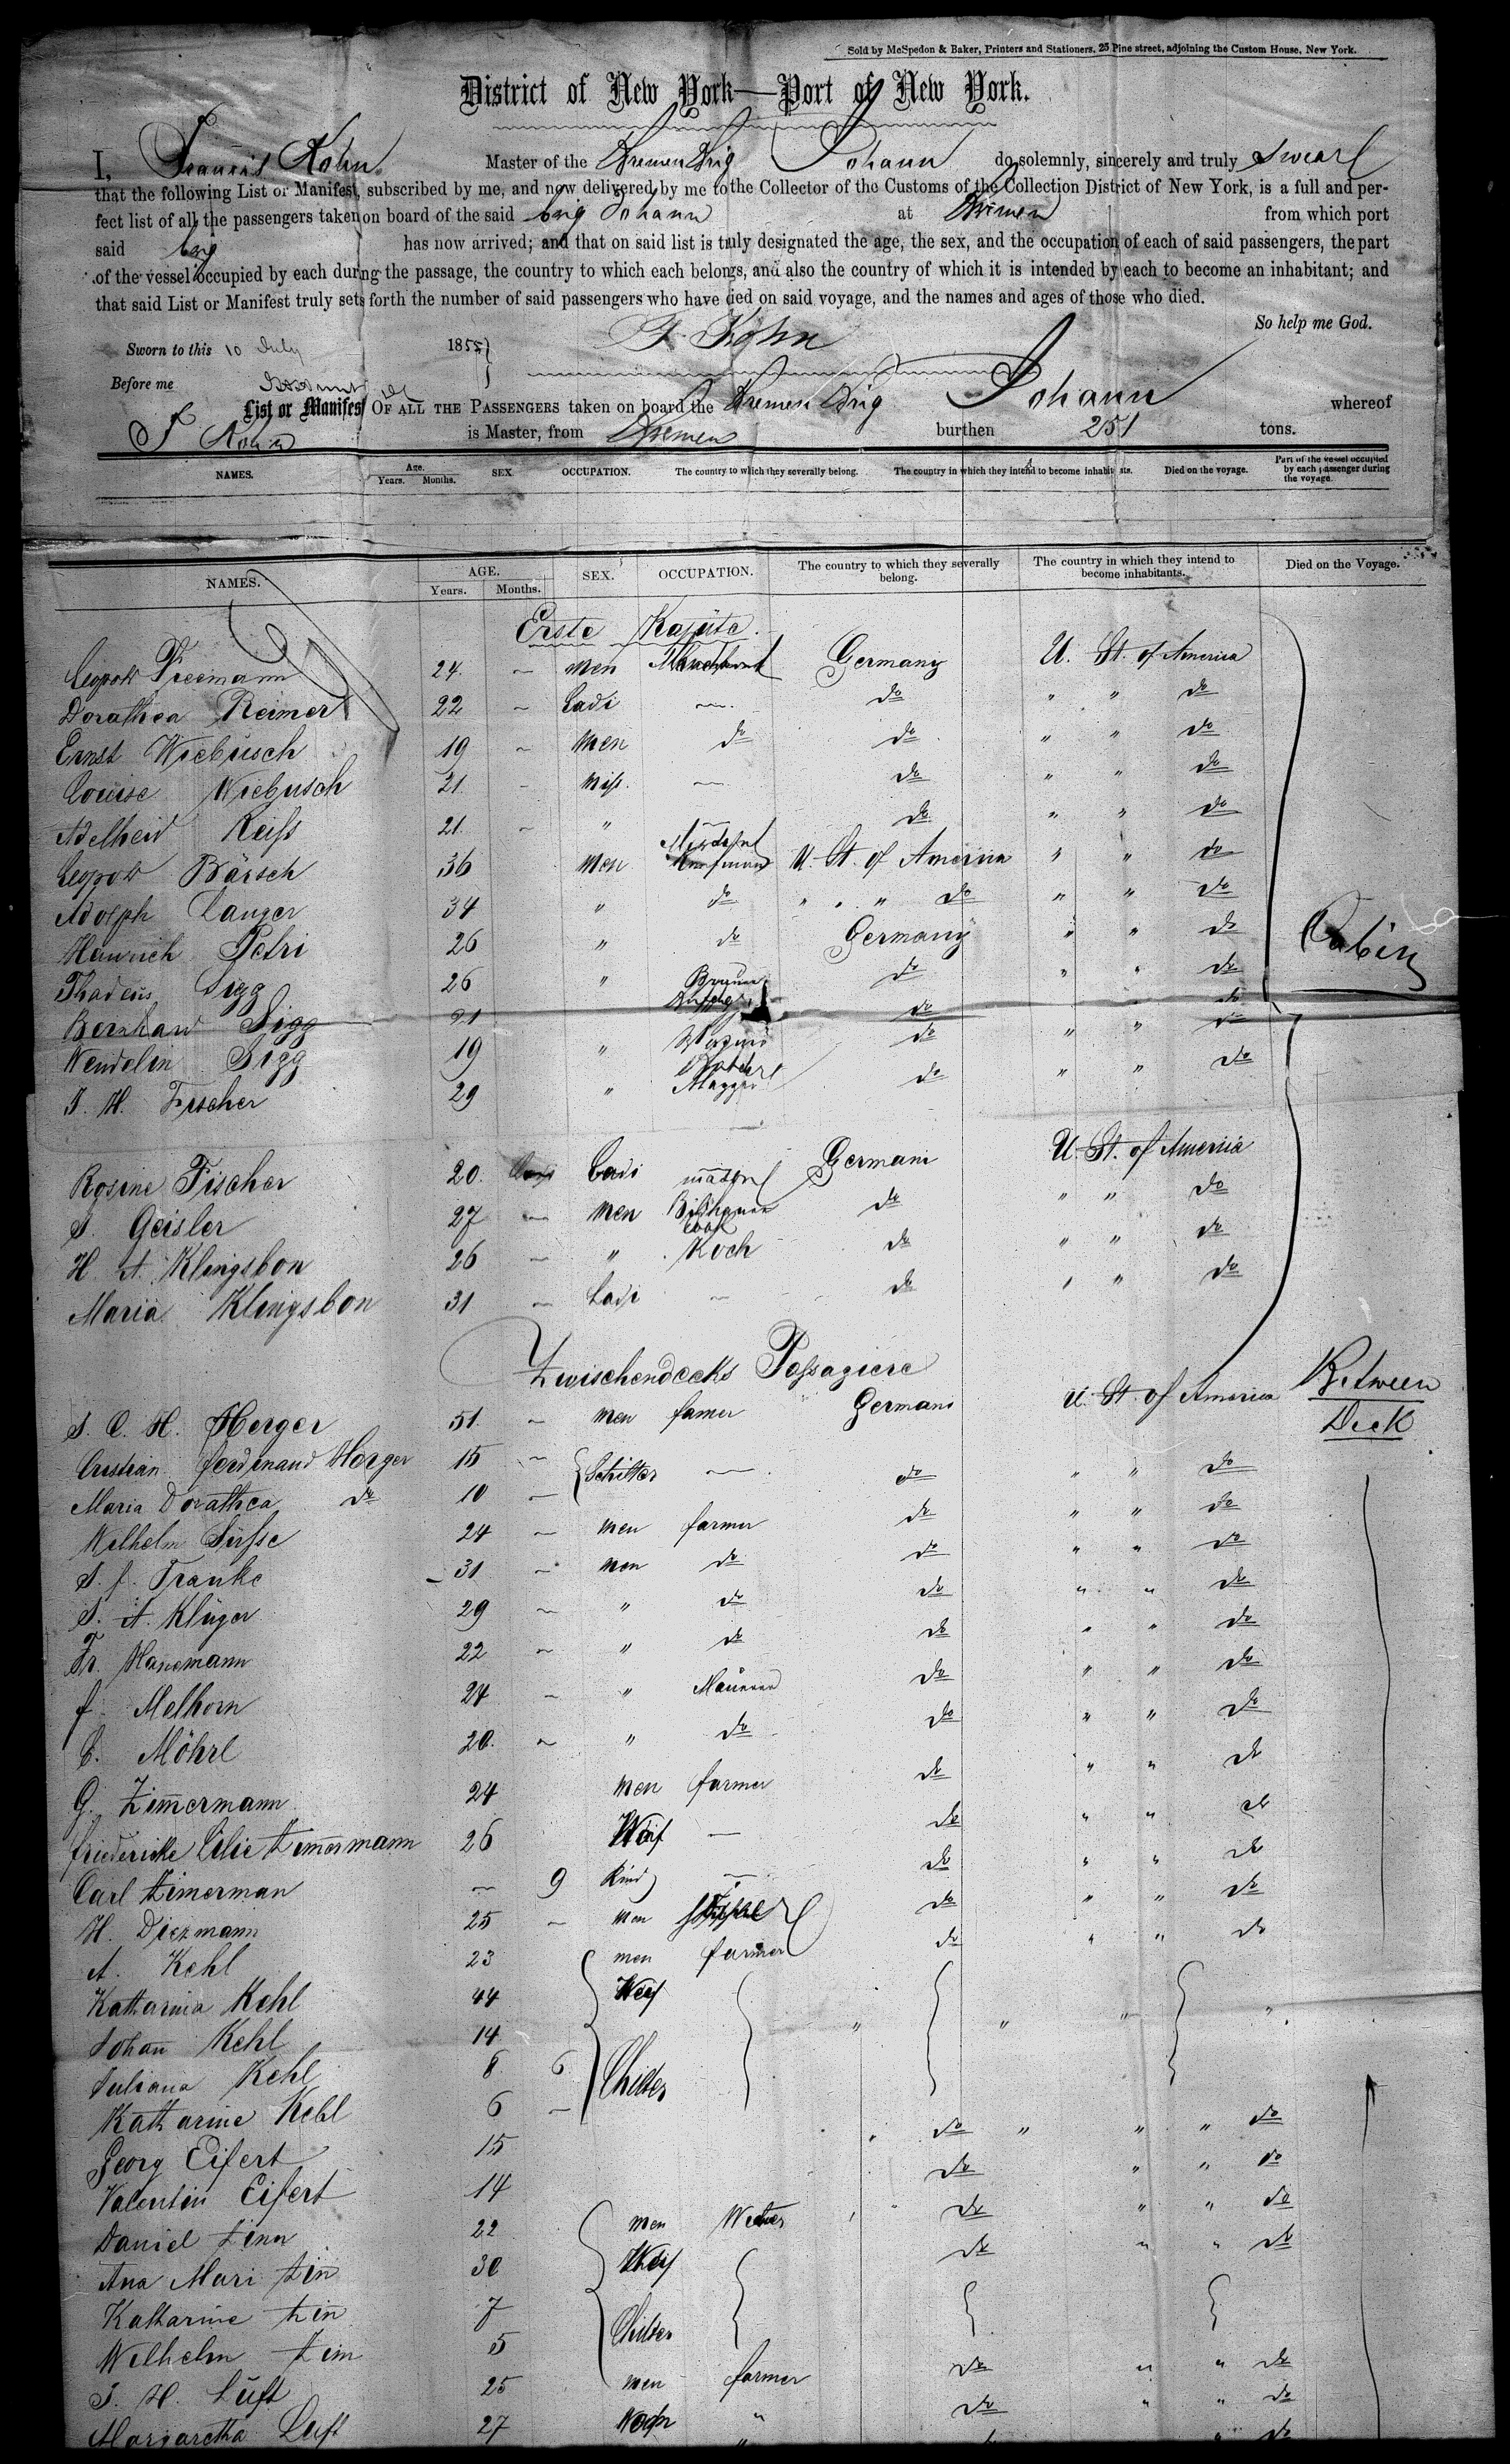 Sold by McSpedon & Baker, Printers and Stationers, 25 Pine street, adjoining the Custom House, New York.
District of New York—Port of New York.
I, Francis Kohn Master of the Bremen Brig Johann do solemnly, sincerely and truly swear
that the following List or Manifest, subscribed by me, and now delivered by me to the Collector of the Customs of the Collection District of New York, is a full and per-
fect list of all the passengers taken on board of the said brig Johann at Bremen from which port
said brig has now arrived; and that on said list is truly designated the age, the sex, and the occupation of each of said passengers, the part
of the vessel occupied by each during the passage, the country to which each belongs, and also the country of which it is intended by each to become an inhabitant; and
that said List or Manifest truly sets forth the number of said passengers who have died on said voyage, and the names and ages of those who died.
So help me God.
F. Kohn
Sworn to this 10 July 1855
Before me
List or Manifest OF ALL THE PASSENGERS taken on board the Bremen Brig Johann whereof
F Kohn is Master, from Bremen burthen 251 tons.
NAMES. Age. Years. Months. SEX OCCUPATION. The country to which they severally belong. The country in which they intend to become inhabitants. Died on the voyage. Part of the vessel occupied by each passenger during the voyage.
NAMES. AGE. Years. Months. SEX. OCCUPATION. The country to which they severally belong. The country in which they intend to become inhabitants. Died on the Voyage.
Erste Kajüte.
Leopold Freemann 24. – men Germany U. St. of America
Dorathea Reimer 22 – Ladi – do " " do
Ernst Wiebusch 19 – men do do " " do
Louise Wiebusch 21 – miss. – do " " do
Adelheid Reiss 21. – " – do " " do
Leopold Bärsch 36 men Kaufmann U. St. of America " " do
Adolph Langer 34 " do " " " do " " do
Heinrich Petri 26 " do Germany " " do
Cabin
Thadeus Sigg 26 " do " " do
Bernhard Sigg 21 do do
Wendelin Sigg 19 " do " " do
J. H. Fischer 29 " do " " do
Rosine Fischer 20. Ladi Germani U. St. of America
J. Geisler 27 – men do " " do
H. A. Klingsbon 26 – " cook Koch do " " do
Maria Klingsbon 31 – Ladi – do " " do
Zwischendecks Passagiere
Between Deck
J. C. H. Herger 51. – men famer Germani U. St. of America
Cristian ferdinand Herger 15 –
Maria Dorathea do 10 – do " " do
Wilhelm 24 – men farmer do " " do
J. f. Franke 31 – men do do " " do
J. A. Klüger 29 – " do do " " do
Fr. Hanemann 22 – " do do " " do
f. Melhorn 24 – " Maurer do " " do
C. Möhrl 20. – " do do " " do
G. Zimmermann 24 men farmer do " " do
friedericke Zimmermann 26 – do " " do
Carl Zimerman – 9 Kind – do " " do
H. Diezmann 25 – men do " " do
A. Kehl 23 men farmer do " " do
Katharina Kehl 44
Johan Kehl 14 " " " "
Juliana Kehl 8 6
Katharine Kehl 6 –
Georg Eifert 15 " do " " " do
Valentin Eifert 14 do " " do
Daniel Zinn 22 men do " " do
Ana Mari Zin 30 do " " do
Katharine Zin 7
Wilhelm Zin 5
J. H. Luft 25 men farmer do " " do
Margaretha Luft 27 " do " " do